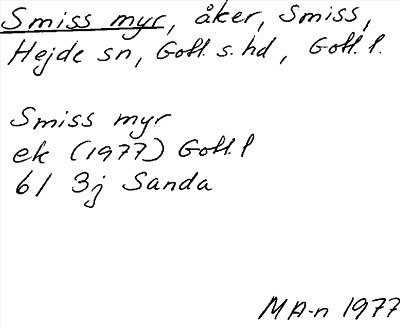 Smiss myr, åker, Smiss,
Hejde sn, Gotl. s. hd, Gotl. l.
Smiss myr
ek (1977) Gotl. l
6I 3j Sanda
MA-n 1977